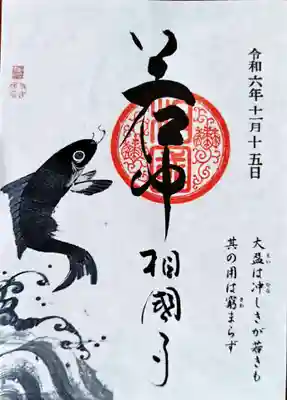 令和六年十一月十五日
大盈は冲しきが若きも
其の用は窮まらず
若冲
相國寺